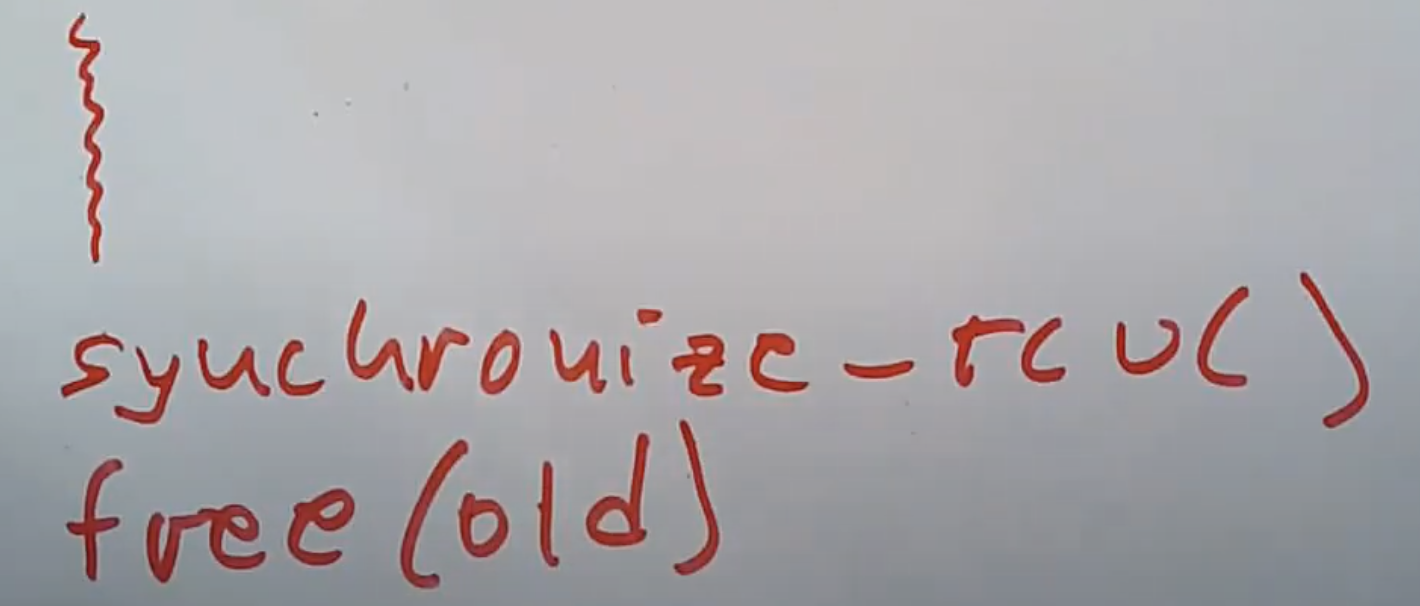 synchronize_rcu()
free(old)